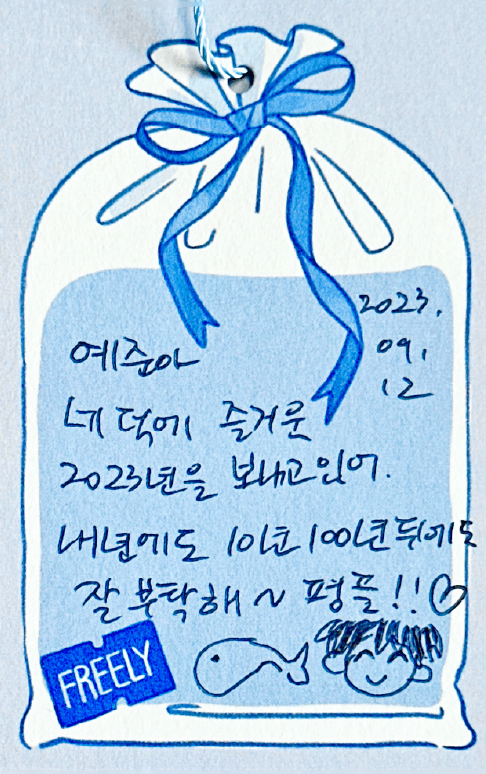 2023.
09.
12
예준아
네 덕에 즐거운
2023년을 보내고있어.
내년에도 10년 100년뒤에도
잘 부탁해~ 평플!!♡
FREELY